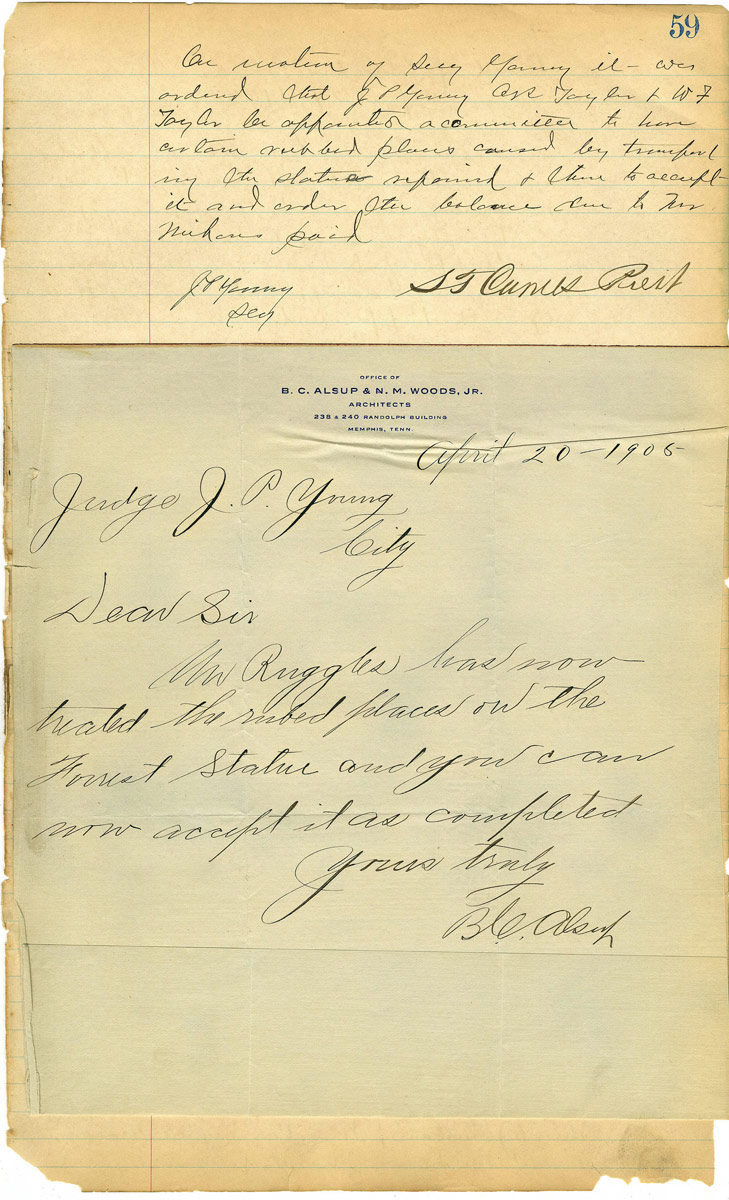 59
On motion of Secy Young it was
ordered that J P Young A R Taylor & W F
Taylor be appointed a committee to have
certain rubbed places caused by transport
ing the statue repaired & then to accept
it and order the balance due to Mr
Niehaus paid
J P Young
Secy
S T Carnes Prest
OFFICE OF
B. C. ALSUP & N. M. WOODS, JR.
ARCHITECTS
238 & 240 RANDOLPH BUILDING
MEMPHIS, TENN.
April 20-1905
Judge J. P. Young
City
Dear Sir
Mr Ruggles has now
treated the rubed places on the
Forrest Statue and you can
now accept it as completed
Yours truly
B. C. Alsup